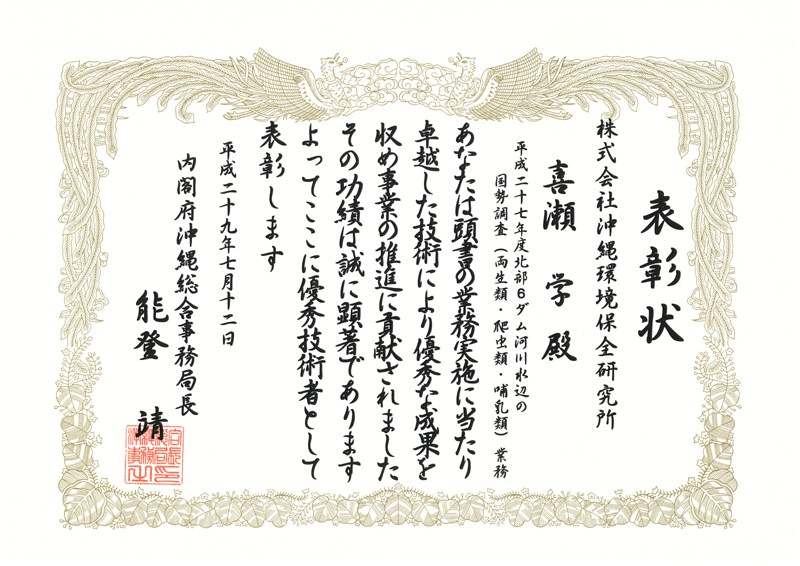 表彰状
株式会社沖縄環境保全研究所
喜瀬 学 殿
平成二十七年度北部6ダム河川水辺の
国勢調査(両生類・爬虫類・哺乳類)業務
あなたは頭書の業務実施に当たり
卓越した技術により優秀な成果を
収め事業の推進に貢献されました
その功績は誠に顕著であります
よってここに優秀技術者として
表彰します
平成二十九年七月十二日
内閣府沖縄総合事務局長
能登 靖